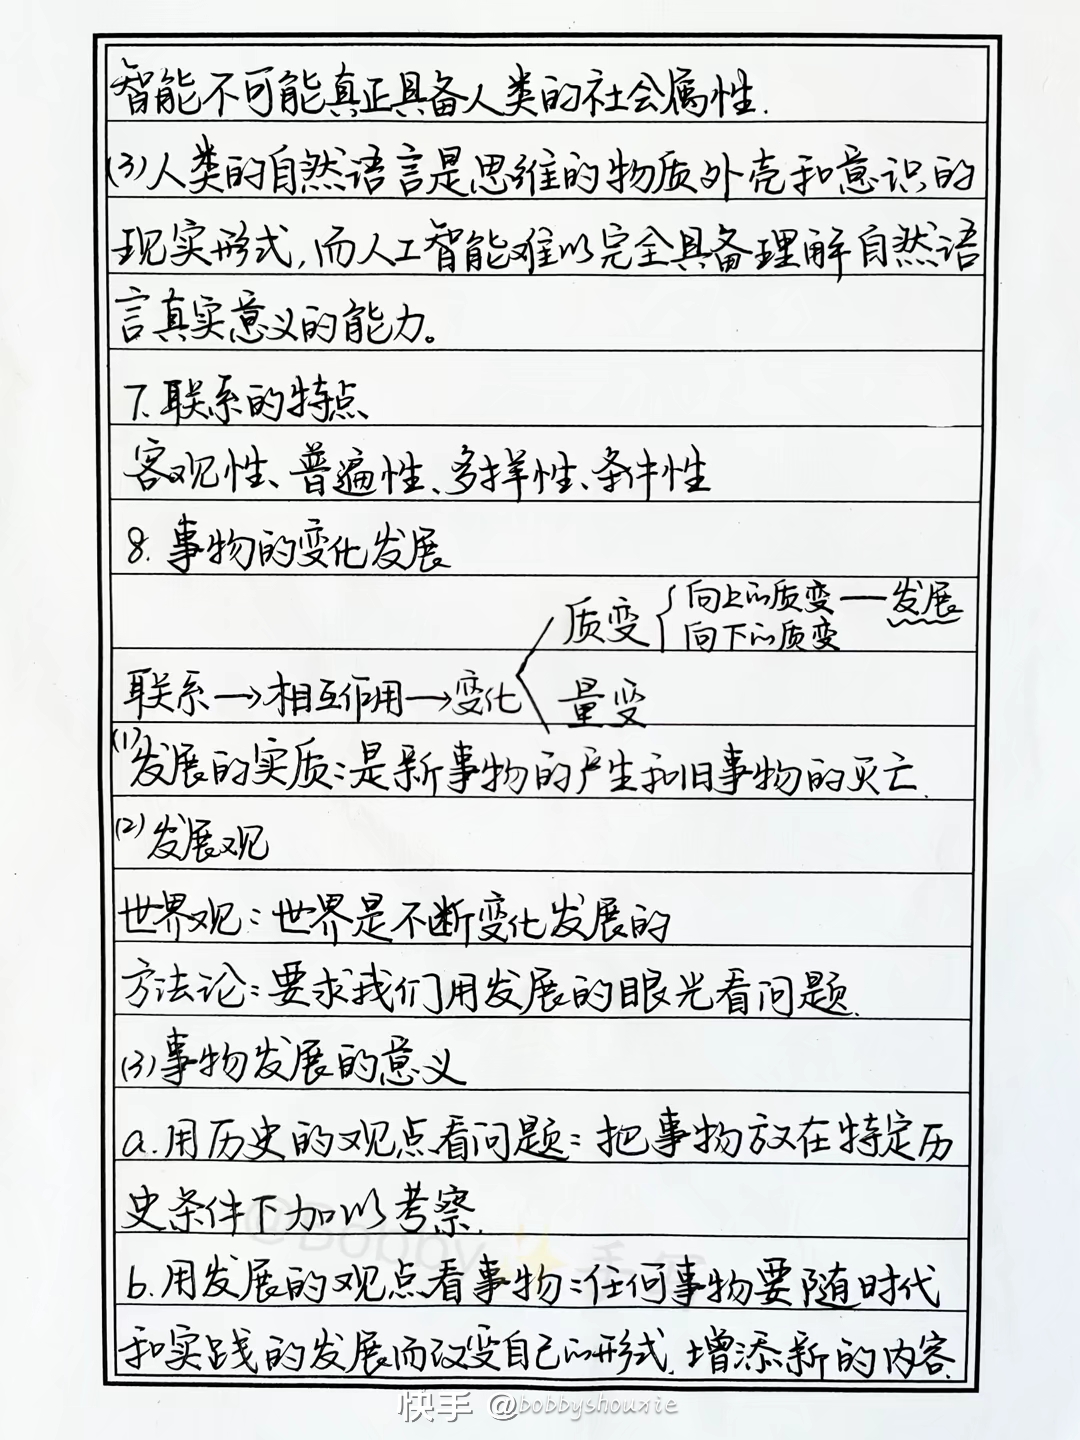 智能不可能真正具备人类的社会属性.
(3)人类的自然语言是思维的物质外壳和意识的
现实形式,而人工智能难以完全具备理解自然语
言真实意义的能力。
7.联系的特点
客观性、普遍性、多样性、条件性
8.事物的变化发展
质变{向上的质变—发展
向下的质变
联系→相互作用→变化
量变
(1)发展的实质:是新事物的产生和旧事物的灭亡.
(2)发展观
世界观:世界是不断变化发展的
方法论:要求我们用发展的眼光看问题.
(3)事物发展的意义
a.用历史的观点看问题:把事物放在特定历
史条件下加以考察.
b.用发展的观点看事物:任何事物要随时代
和实践的发展而改变自己的形式,增添新的内容.
@Bobby✨手写
快手 @bobbyshouxie